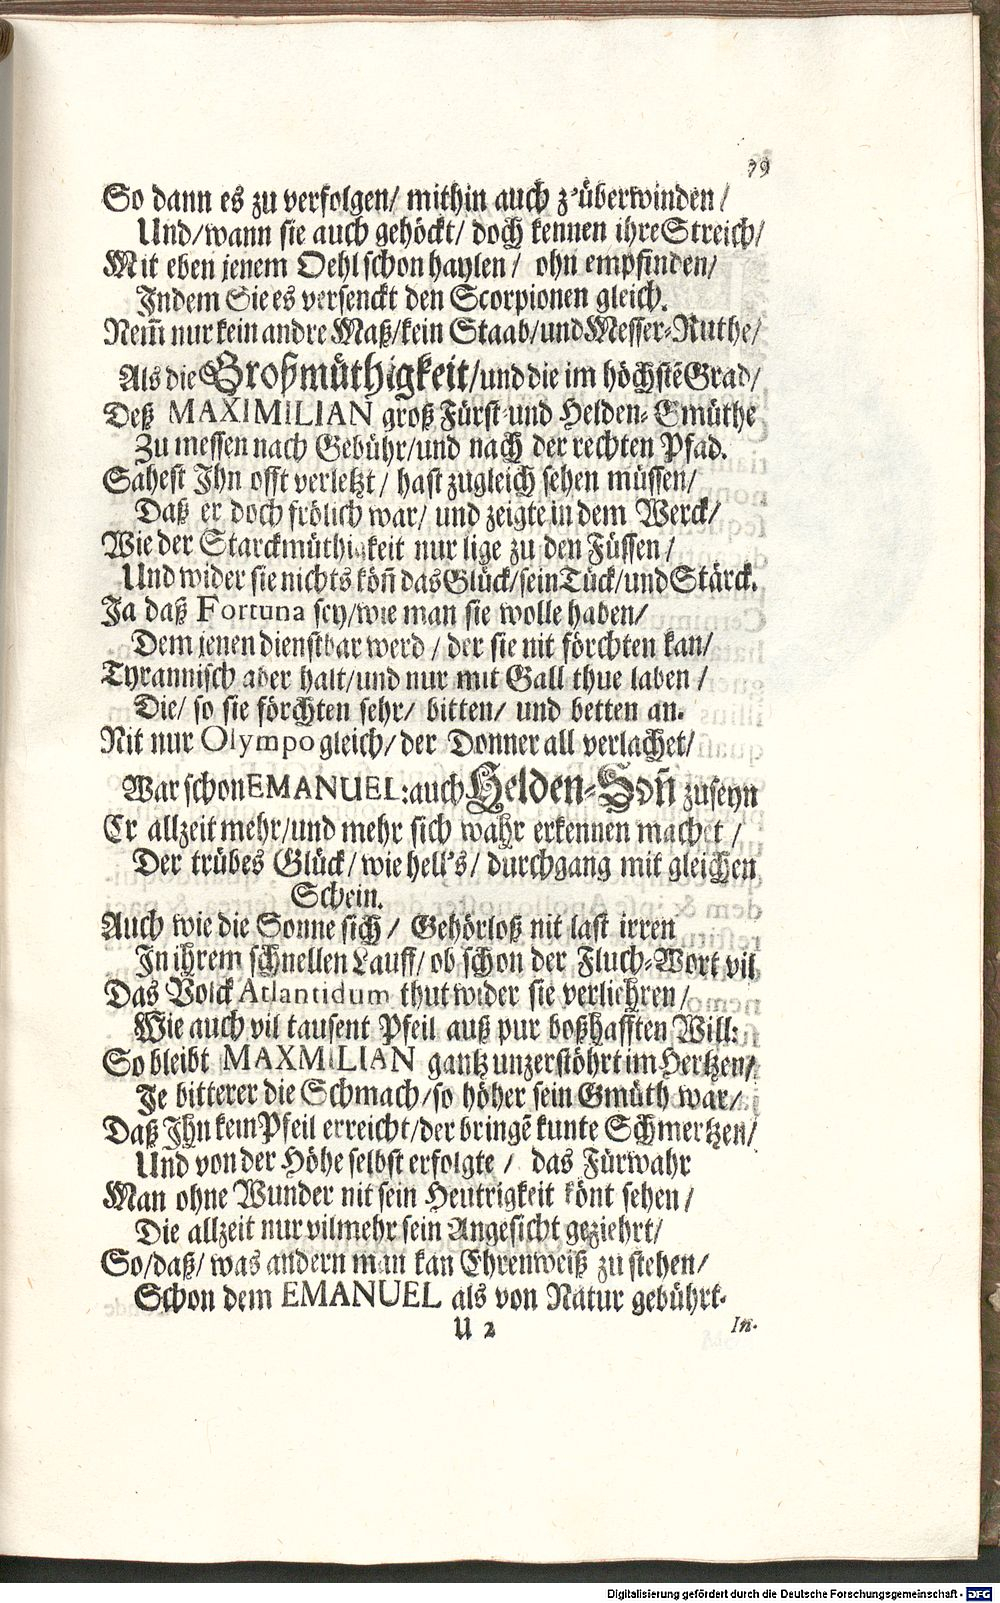 79
So dann es zu verfolgen/ mithin auch z'überwinden/
Und/wann sie auch gehöckt/ doch kennen ihre Streich/
Mit eben jenem Oehl schon haylen/ ohn empfinden/
Indem Sie es versenckt den Scorpionen gleich.
Nem̃ nur kein andre Maß/kein Staab/und Messer-Ruthe/
Als die Großmüthigkeit/und die im höchstẽ Grad/
Deß MAXIMILIAN groß Fürst-und Helden-Gmüthe
Zu messen nach Gebühr/und nach der rechten Pfad.
Sahest Ihn offt verletzt/ hast zugleich sehen müssen/
Daß er doch frölich war/ und zeigte in dem Werck/
Wie der Starckmüthigkeit nur lige zu den Füssen/
Und wider sie nichts kön̄ das Glück/sein Tück/und Stärck.
Ja daß Fortuna sey/wie man sie wolle haben/
Dem jenen dienstbar werd/ der sie nit förchten kan/
Tyrannisch aber halt/und nur mit Gall thue laben/
Die/ so sie förchten sehr/ bitten/ und betten an.
Nit nur Olympo gleich/der Donner all verlachet/
War schon EMANUEL:auch Helden-Son̄ zuseyn
Er allzeit mehr/und mehr sich wahr erkennen machet/
Der trübes Glück/wie hell's/ durchgang mit gleichen
Schein.
Auch wie die Sonne sich/ Gehörloß nit last irren
In ihrem schnellen Lauff/ob schon der Fluch-Wort vil
Das Volck Atlantidum thut wider sie verliehren/
Wie auch vil tausent Pfeil auß pur boßhafften Will:
So bleibt MAXMILIAN gantz unzerstöhrt im Hertzen/
Je bitterer die Schmach/so höher sein Gmüth war/
Daß Ihn kein Pfeil erreicht/der bringẽ kunte Schmertzen/
Und von der Höhe selbst erfolgte/ das Fürwahr
Man ohne Wunder nit sein Heutrigkeit könt sehen/
Die allzeit nur vilmehr sein Angesicht geziehrt/
So/daß/ was andern man kan Ehrenweiß zu stehen/
Schon dem EMANUEL als von Natur gebührt.
U 2
In-
Digitalisierung gefördert durch die Deutsche Forschungsgemeinschaft - DFG